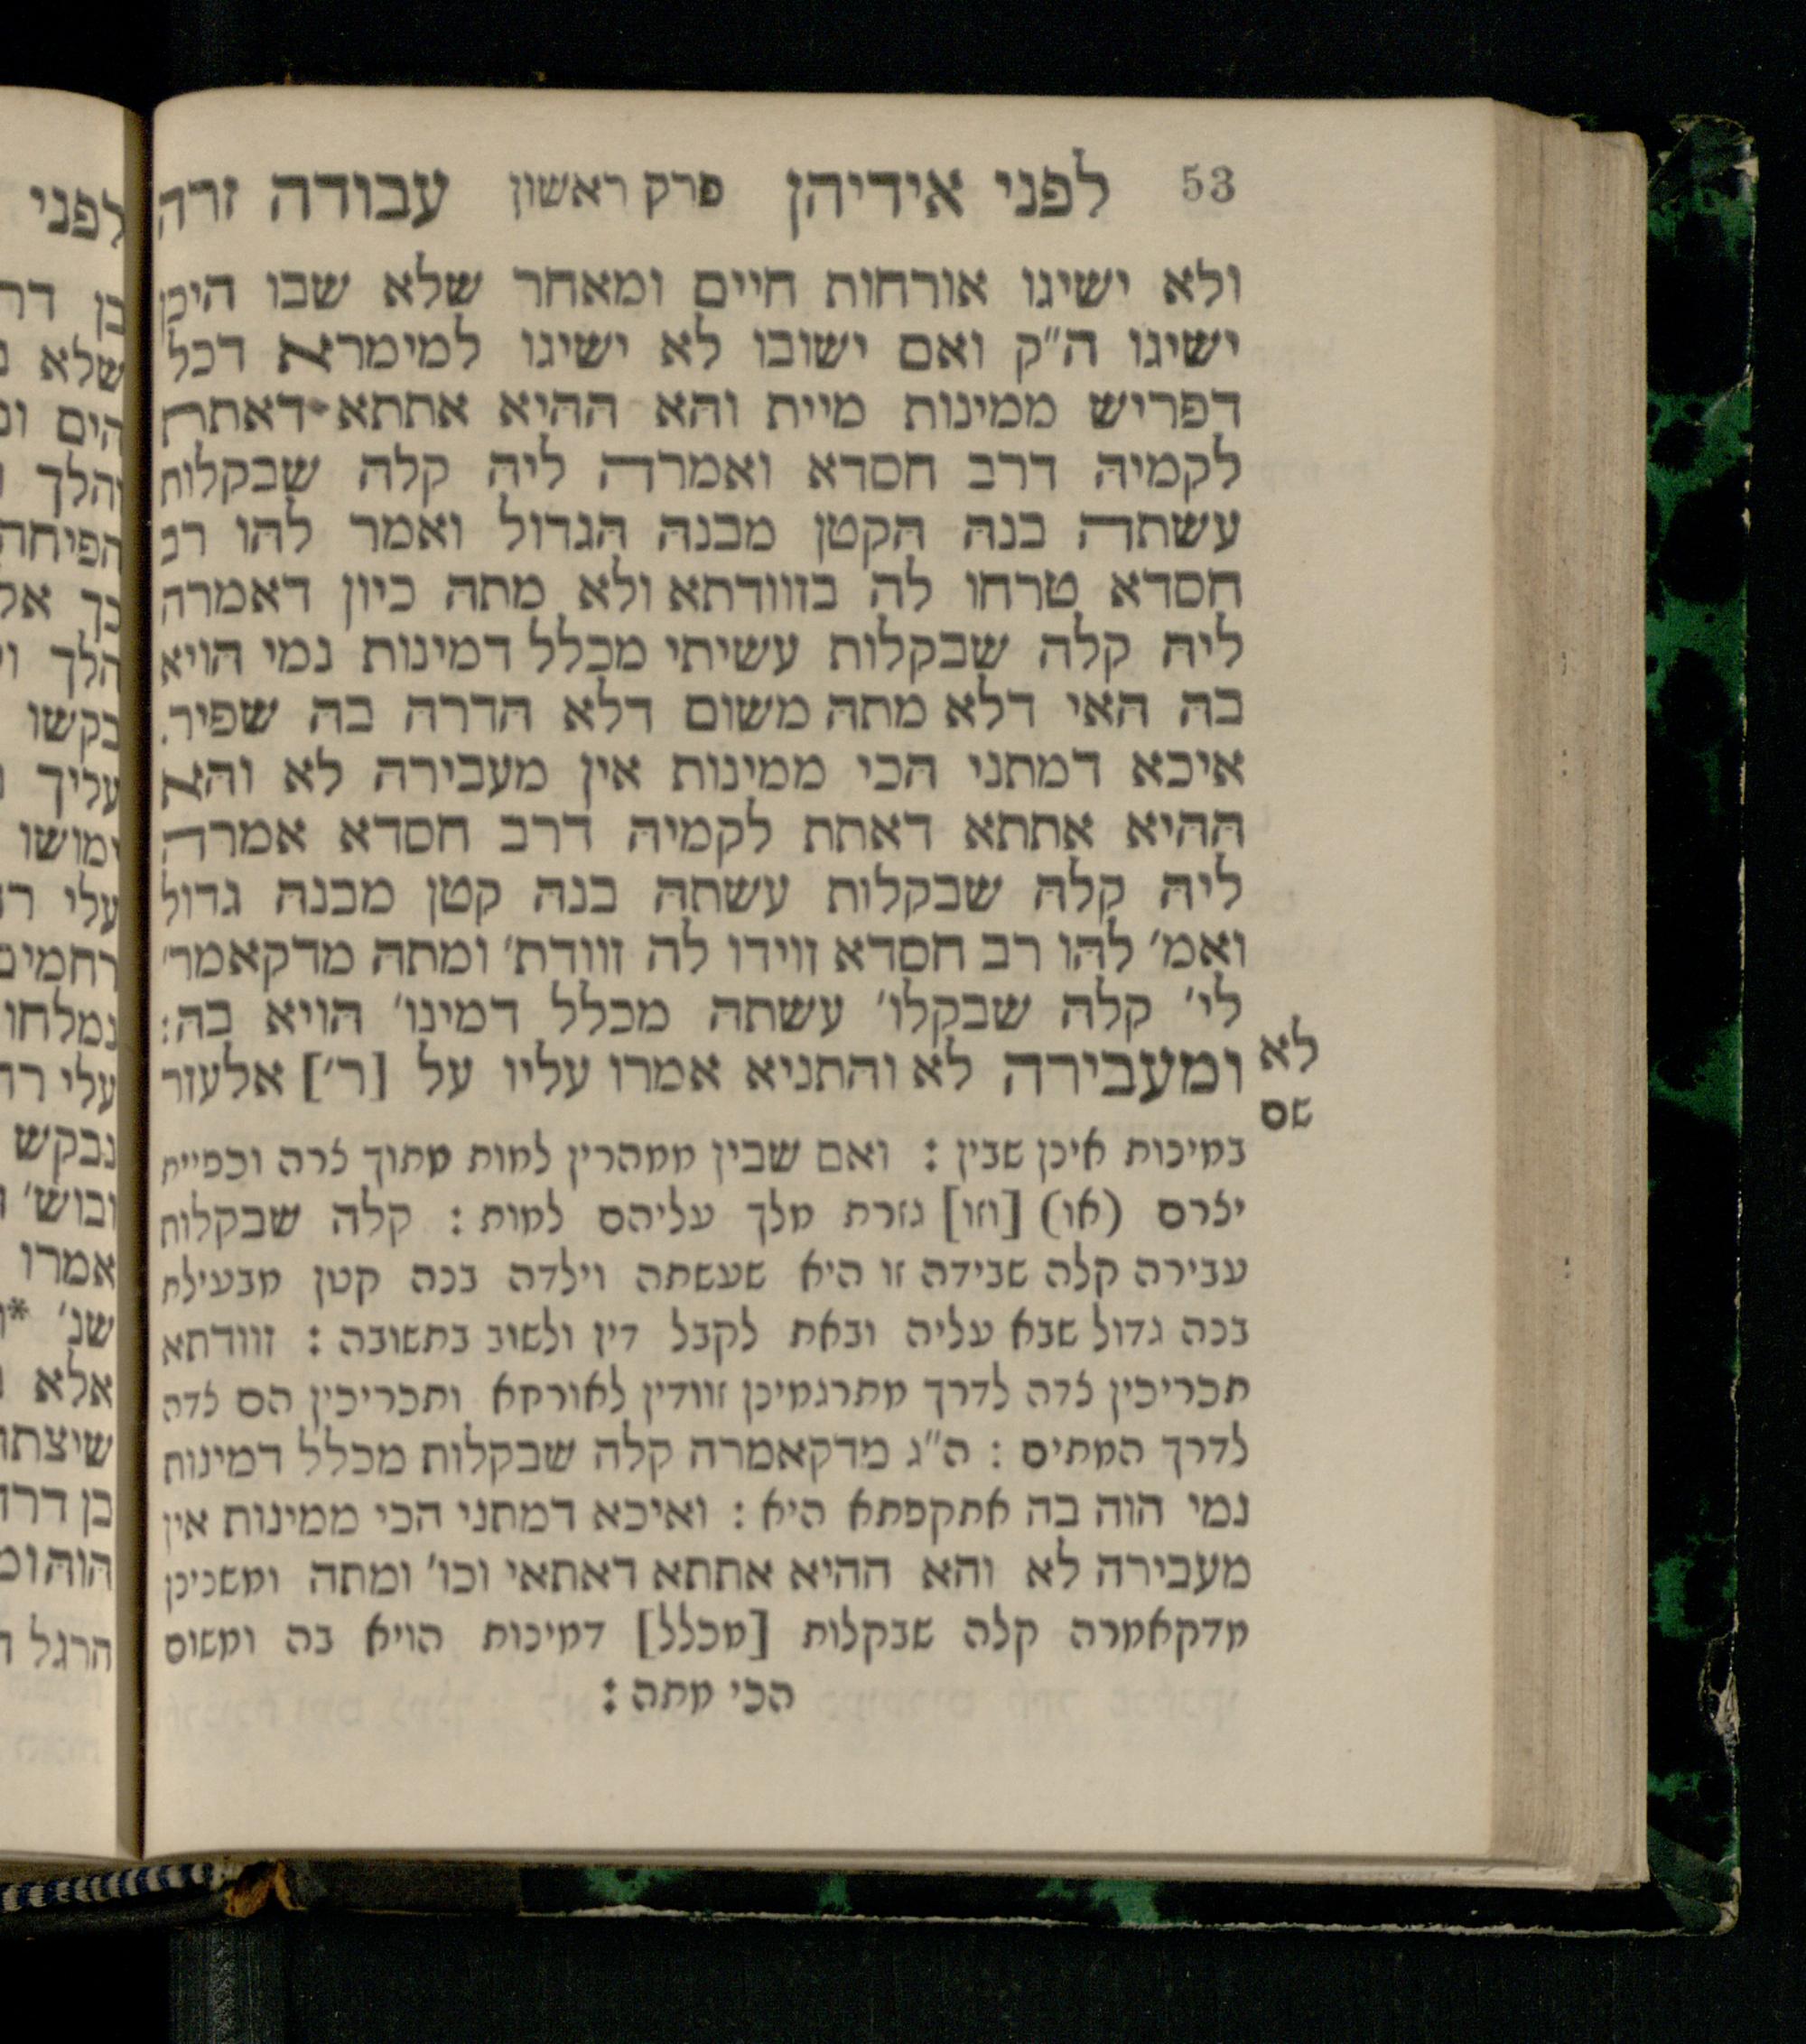 53 לפני אידיהן פרק ראשון עבודה זרה
ולא ישיגו אורחות חיים ומאחר שלא שבו היכן
ישיגו ה״ק ואם ישובו לא ישיגו למימרא דכל
דפריש ממינות מיית והא ההיא אתתא דאתת
לקמיה דרב חסדא ואמרה ליה קלה שבקלות
עשתה בנה הקטן מבנה הגדול ואמר להו רב
חסדא טרחו לה בזוודתא ולא מתה כיון דאמרה
ליה קלה שבקלות עשיתי מכלל דמינות נמי הויא
בה האי דלא מתה משום דלא הדרה בה שפיר.
איכא דמתני הכי ממינות אין מעבירה לא והא
ההיא אתתא דאתת לקמיה דרב חסדא אמרה
ליה קלה שבקלות עשתה בנה קטן מבנה גדול
ואמ׳ להו רב חסדא זוידו לה זוודת׳ ומתה מדקאמר׳
לי׳ קלה שבקלו׳ עשתה מכלל דמינו׳ הויא בה:
לא ומעבירה לא והתניא אמרו עליו על [ר׳] אלעזר
שם
במינות אינן שבין : ואם שבין ממהרין למות מתוך צרה וכפיית
יצרם (או) [וזו] גזרת מלך עליהם למות : קלה שבקלות
עבירה קלה שבידה זו היא שעשתה וילדה בנה קטן מבעילת
בנה גדול שבא עליה ובאת לקבל דין ולשוב בתשובה : זוודתא
תכריכין צדה לדרך מתרגמינן זוודין לאורחא ותכריכין הם צדה
לדרך המתים : ה״ג מדקאמרה קלה שבקלות מכלל דמינות
נמי הוה בה אתקפתא היא : ואיכא דמתני הכי ממינות אין
מעבירה לא והא ההיא אתתא דאתאי וכו׳ ומתה ומשנינן
מדקאמרה קלה שבקלות [מכלל] דמינות הויא בה ומשום
הכי מתה :
לפני
שלא
והלך
הלך
בקשו
עליך
נבקש
אמרו
שנ׳
אלא
הרגל